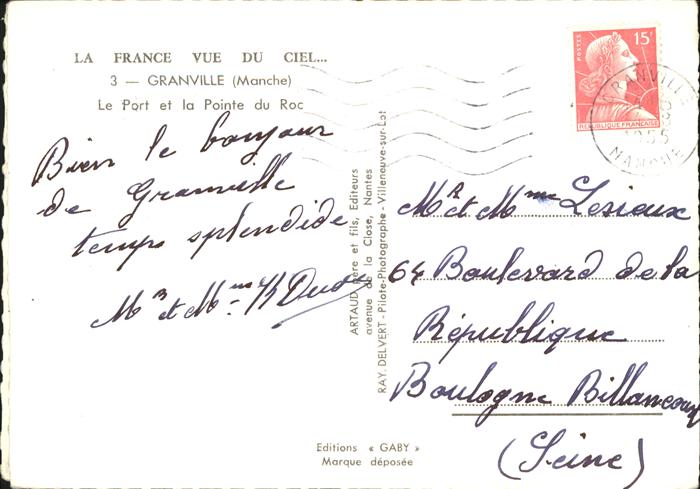 LA FRANCE VUE DU CIEL...
3 — GRANVILLE (Manche)
Le Port et la Pointe du Roc
Bien le bonjour
de Granville
temps splendide
Mr et Mme
ARTAUD Père et fils, Editeurs
avenue de la Close, Nantes
RAY. DELVERT - Pilote-Photographe - Villeneuve-sur-Lot
POSTES
15F
REPUBLIQUE FRANÇAISE
GRANVILLE
1955
MANCHE
Mr et Mme Lesieux
64 Boulevard de la
République
Boulogne Billancourt
(Seine)
Editions « GABY »
Marque déposée